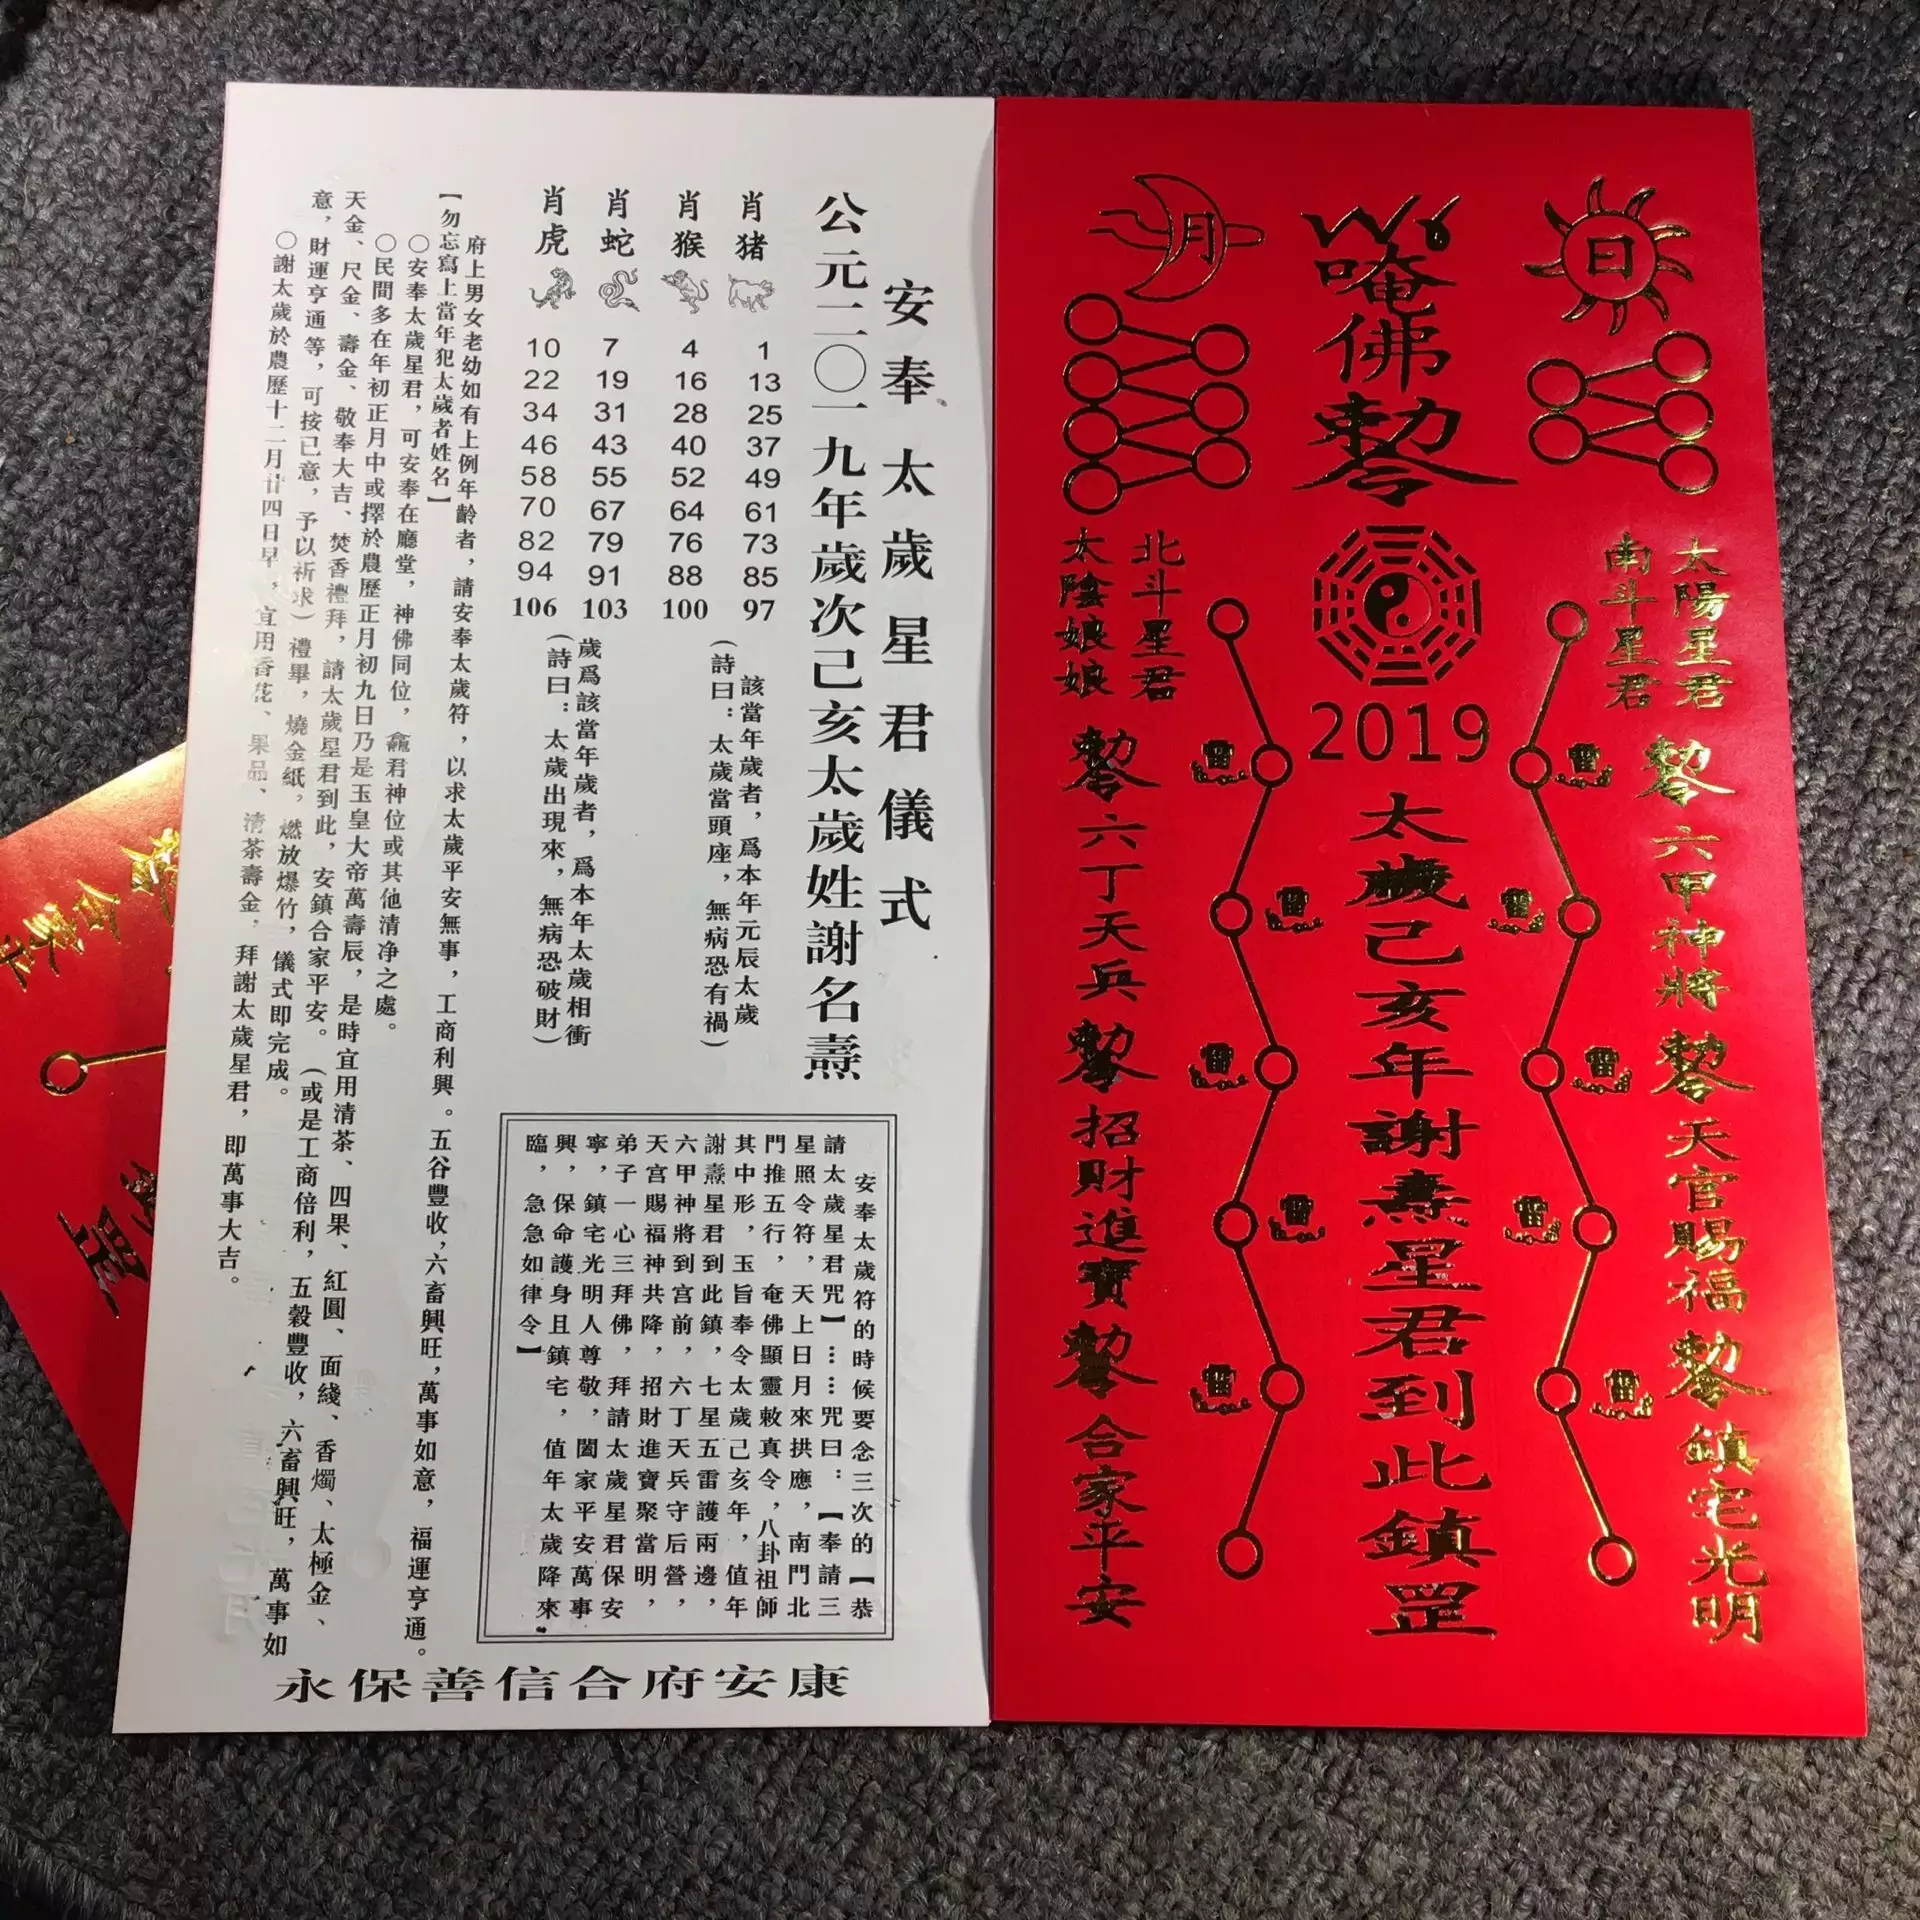 安奉太歲星君儀式
公元二〇一九年歲次己亥太歲姓謝名燾
肖豬
1
13
25
37
49
61
73
85
97
該當年歲者，爲本年元辰太歲
（詩曰：太歲當頭座，無病恐有禍）
肖猴
4
16
28
40
52
64
76
88
100
肖蛇
7
19
31
43
55
67
79
91
103
歲爲該當年歲者，爲本年太歲相衝
（詩曰：太歲出現來，無病恐破財）
肖虎
10
22
34
46
58
70
82
94
106
府上男女老幼如有上例年齡者，請安奉太歲符，以求太歲平安無事，工商利興。五谷豐收，六畜興旺，萬事如意，福運亨通。
【勿忘寫上當年犯太歲者姓名】
〇安奉太歲星君，可安奉在廳堂，神佛同位，龕君神位或其他清净之處。
〇民間多在年初正月中或擇於農歷正月初九日乃是玉皇大帝萬壽辰，是時宜用清茶、四果、紅圓、面綫、香燭、太極金、
天金、尺金、壽金、敬奉大吉、焚香禮拜，請太歲星君到此，安鎮合家平安。（或是工商倍利，五穀豐收，六畜興旺，萬事如
意，財運亨通等，可按己意，予以祈求）禮畢，燒金紙，燃放爆竹，儀式即完成。
〇謝太歲於農歷十二月廿四日早，宜用香花、果品、清茶壽金，拜謝太歲星君，即萬事大吉。
安奉太歲符的時候要念三次的【恭
請太歲星君咒】……咒曰：【奉請三
星照令符，天上日月來拱應，南門北
門推五行，奄佛顯靈敕真令，八卦祖師
其中形，玉旨奉令太歲己亥年，值年
謝燾星君到此鎮，七星五雷護兩邊，
六甲神將到宫前，六丁天兵守后營，
天宫賜福神共降，招財進寶聚當明，
弟子一心三拜佛，拜請太歲星君保安
寧，鎮宅光明人尊敬，闔家平安萬事
興，保命護身且鎮宅，值年太歲降來
臨，急急如律令】
永保善信合府安康
日
月
唵佛勅令
2019
太歲己亥年謝燾星君到此鎮罡
太陽星君
南斗星君
北斗星君
太陰娘娘
勅令六甲神將勅令天官賜福勅令鎮宅光明
勅令六丁天兵勅令招財進寶勅令合家平安